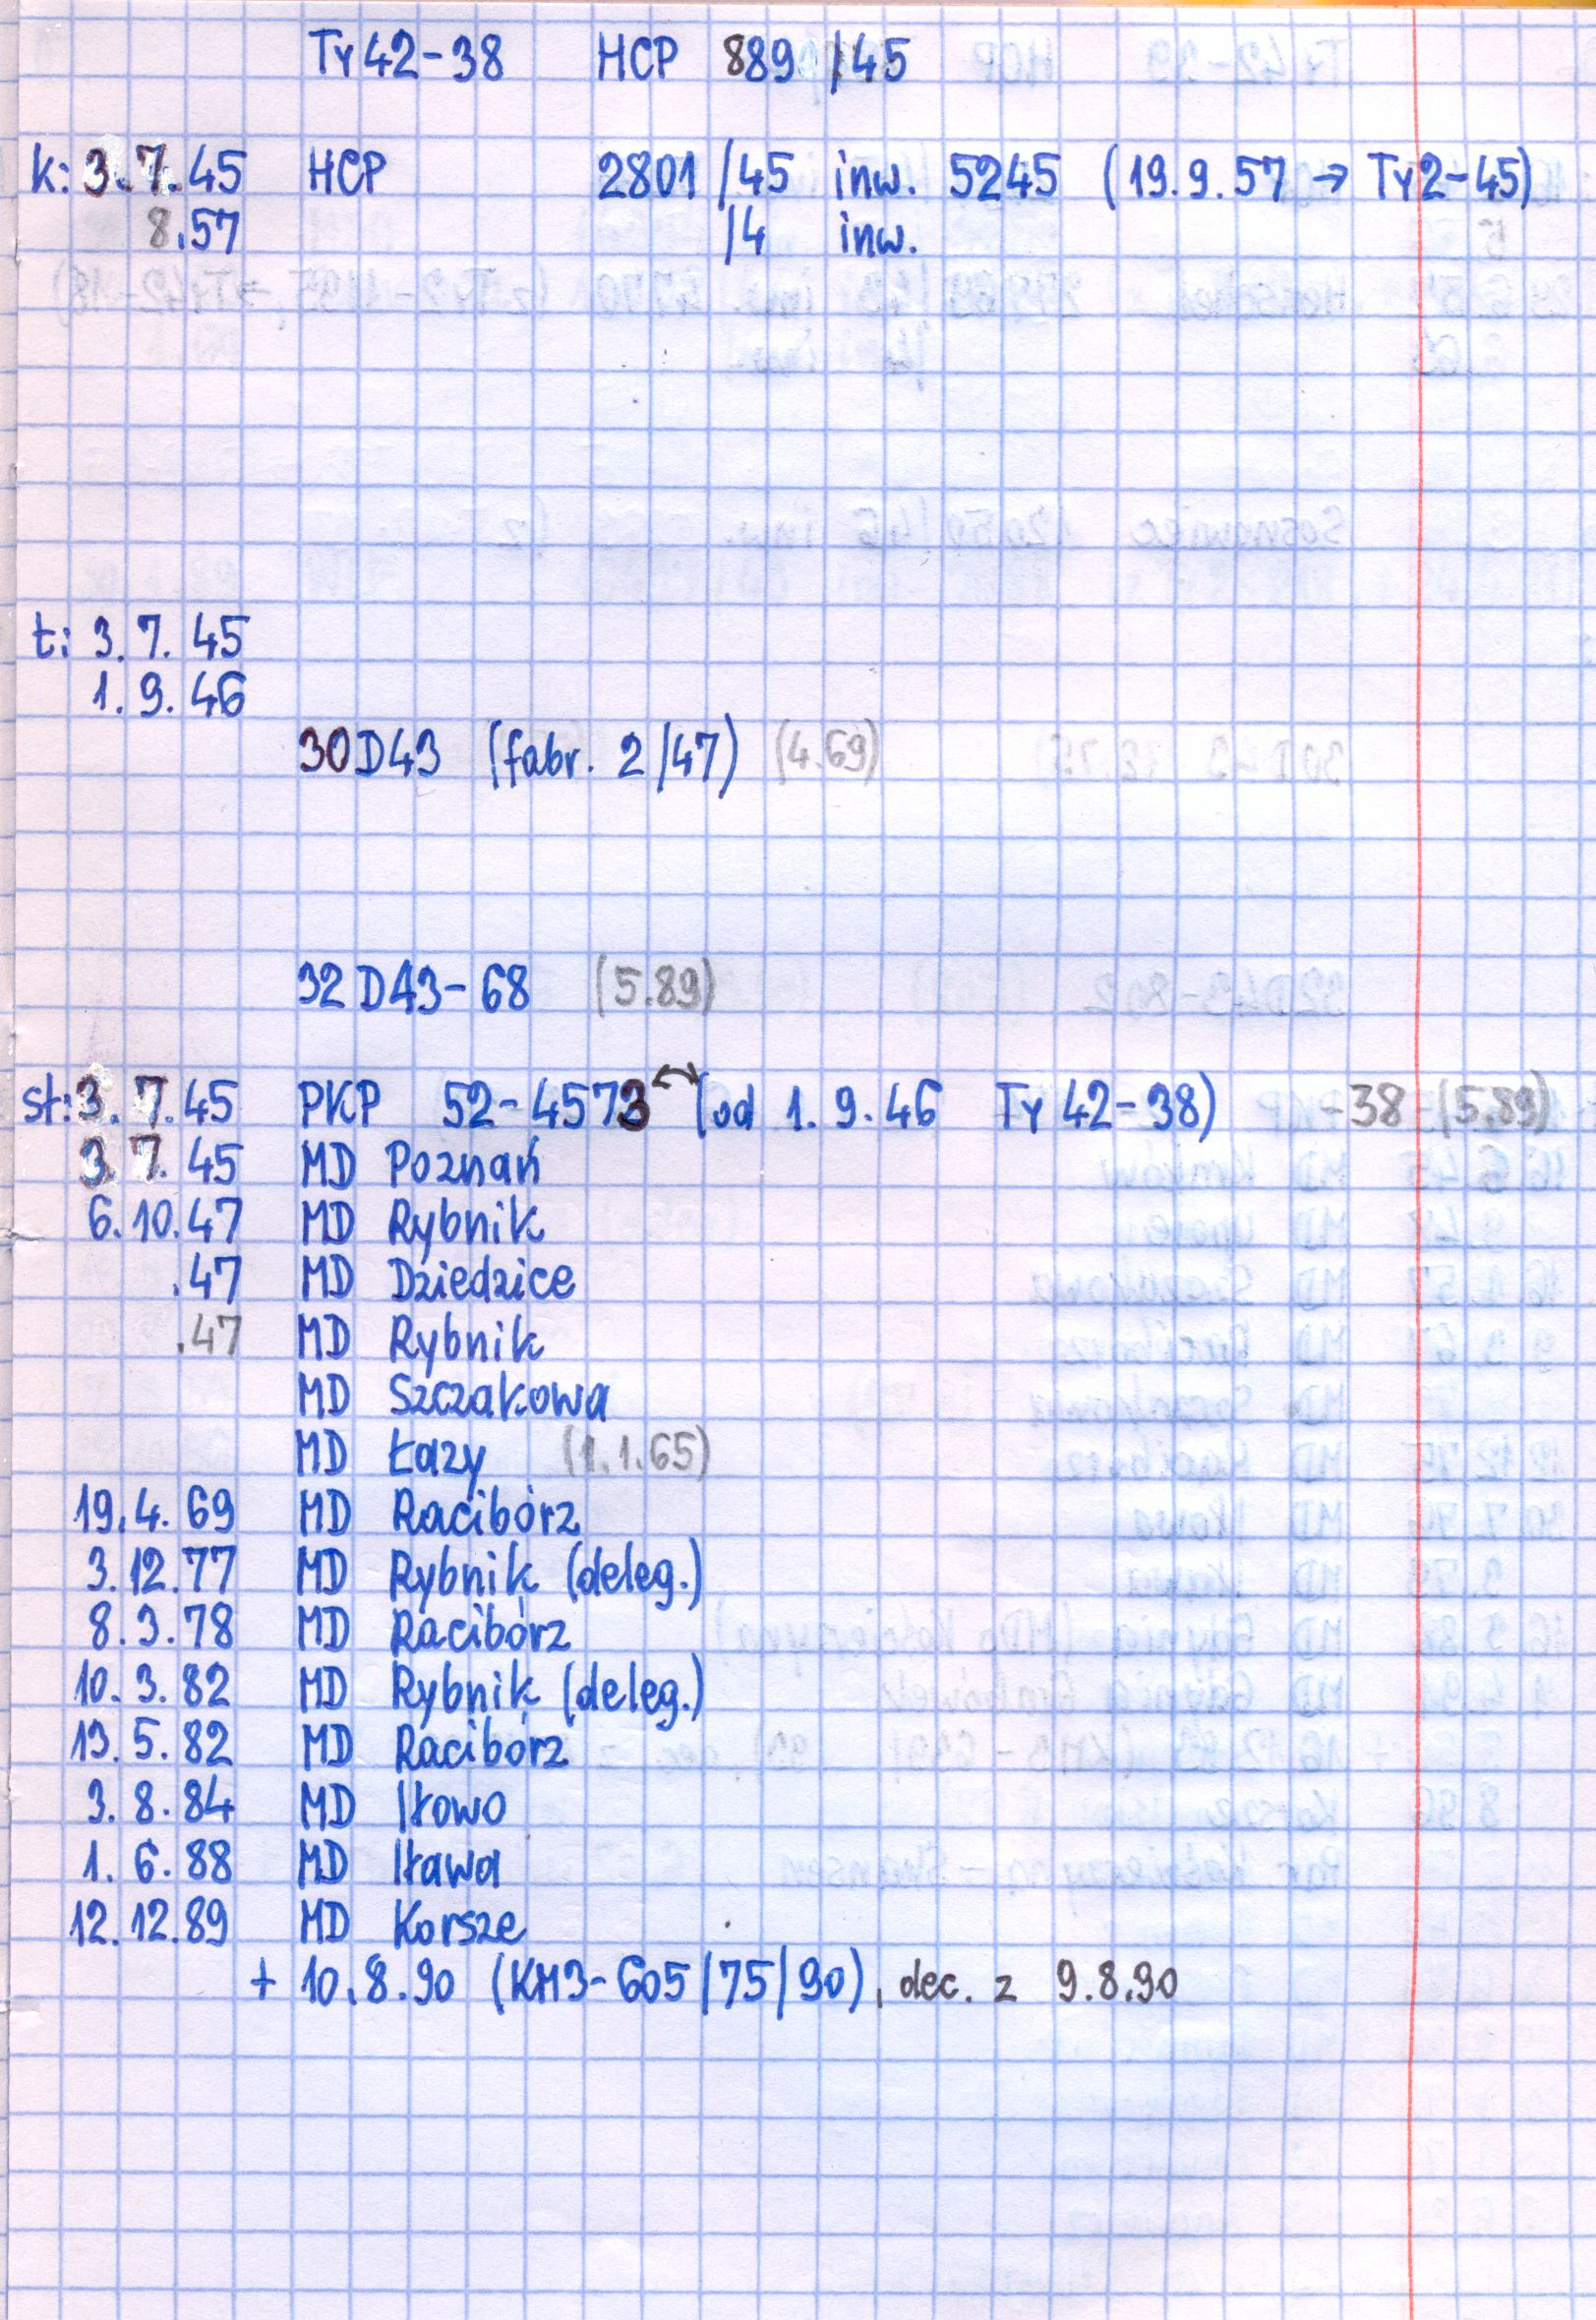 Ty42-38 HCP 889 /45
k: 3.7.45 HCP 2801 /45 inw. 5245 (19.9.57 → Ty2-45)
8.57 /4 inw.
t: 3.7.45
1.9.46
30D43 (fabr. 2/47) (4.69)
32D43-68 (5.89)
st: 3.7.45 PKP 52-4573 (od 1.9.46 Ty42-38) -38 (5.89)
3.7.45 MD Poznań
6.10.47 MD Rybnik
.47 MD Dziedzice
.47 MD Rybnik
MD Szczakowa
MD Łazy (1.1.65)
19.4.69 MD Racibórz
3.12.77 MD Rybnik (deleg.)
8.3.78 MD Racibórz
10.3.82 MD Rybnik (deleg.)
13.5.82 MD Racibórz
3.8.84 MD Iłowo
1.6.88 MD Iława
12.12.89 MD Korsze
+ 10.8.90 (KM3-605/75/90), dec. z 9.8.90